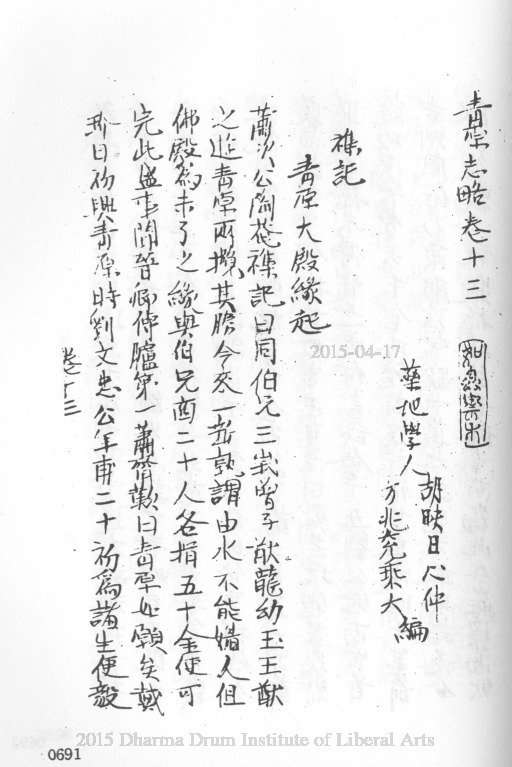 青原志略卷十三
藥地學人
胡映日心仲
方兆兗乘大編
雜記
青原大殿緣起
蕭次公齋菴襍記曰同伯兄三峩曾子猷龍幼玉王猷
之遊青原而攬其勝今來一新孰謂由水不能媚人但
佛殿為未了之緣與伯兄酉二十人各捐五十金便可
完此盛事聞晉卿傳臚第一蕭齊歎曰青原如願矣戴
昔日初興青原時劉文忠公年甫二十初為諸生便毅
卷十三
2015-04-17
2015 Dharma Drum Institute of Liberal Arts
0691